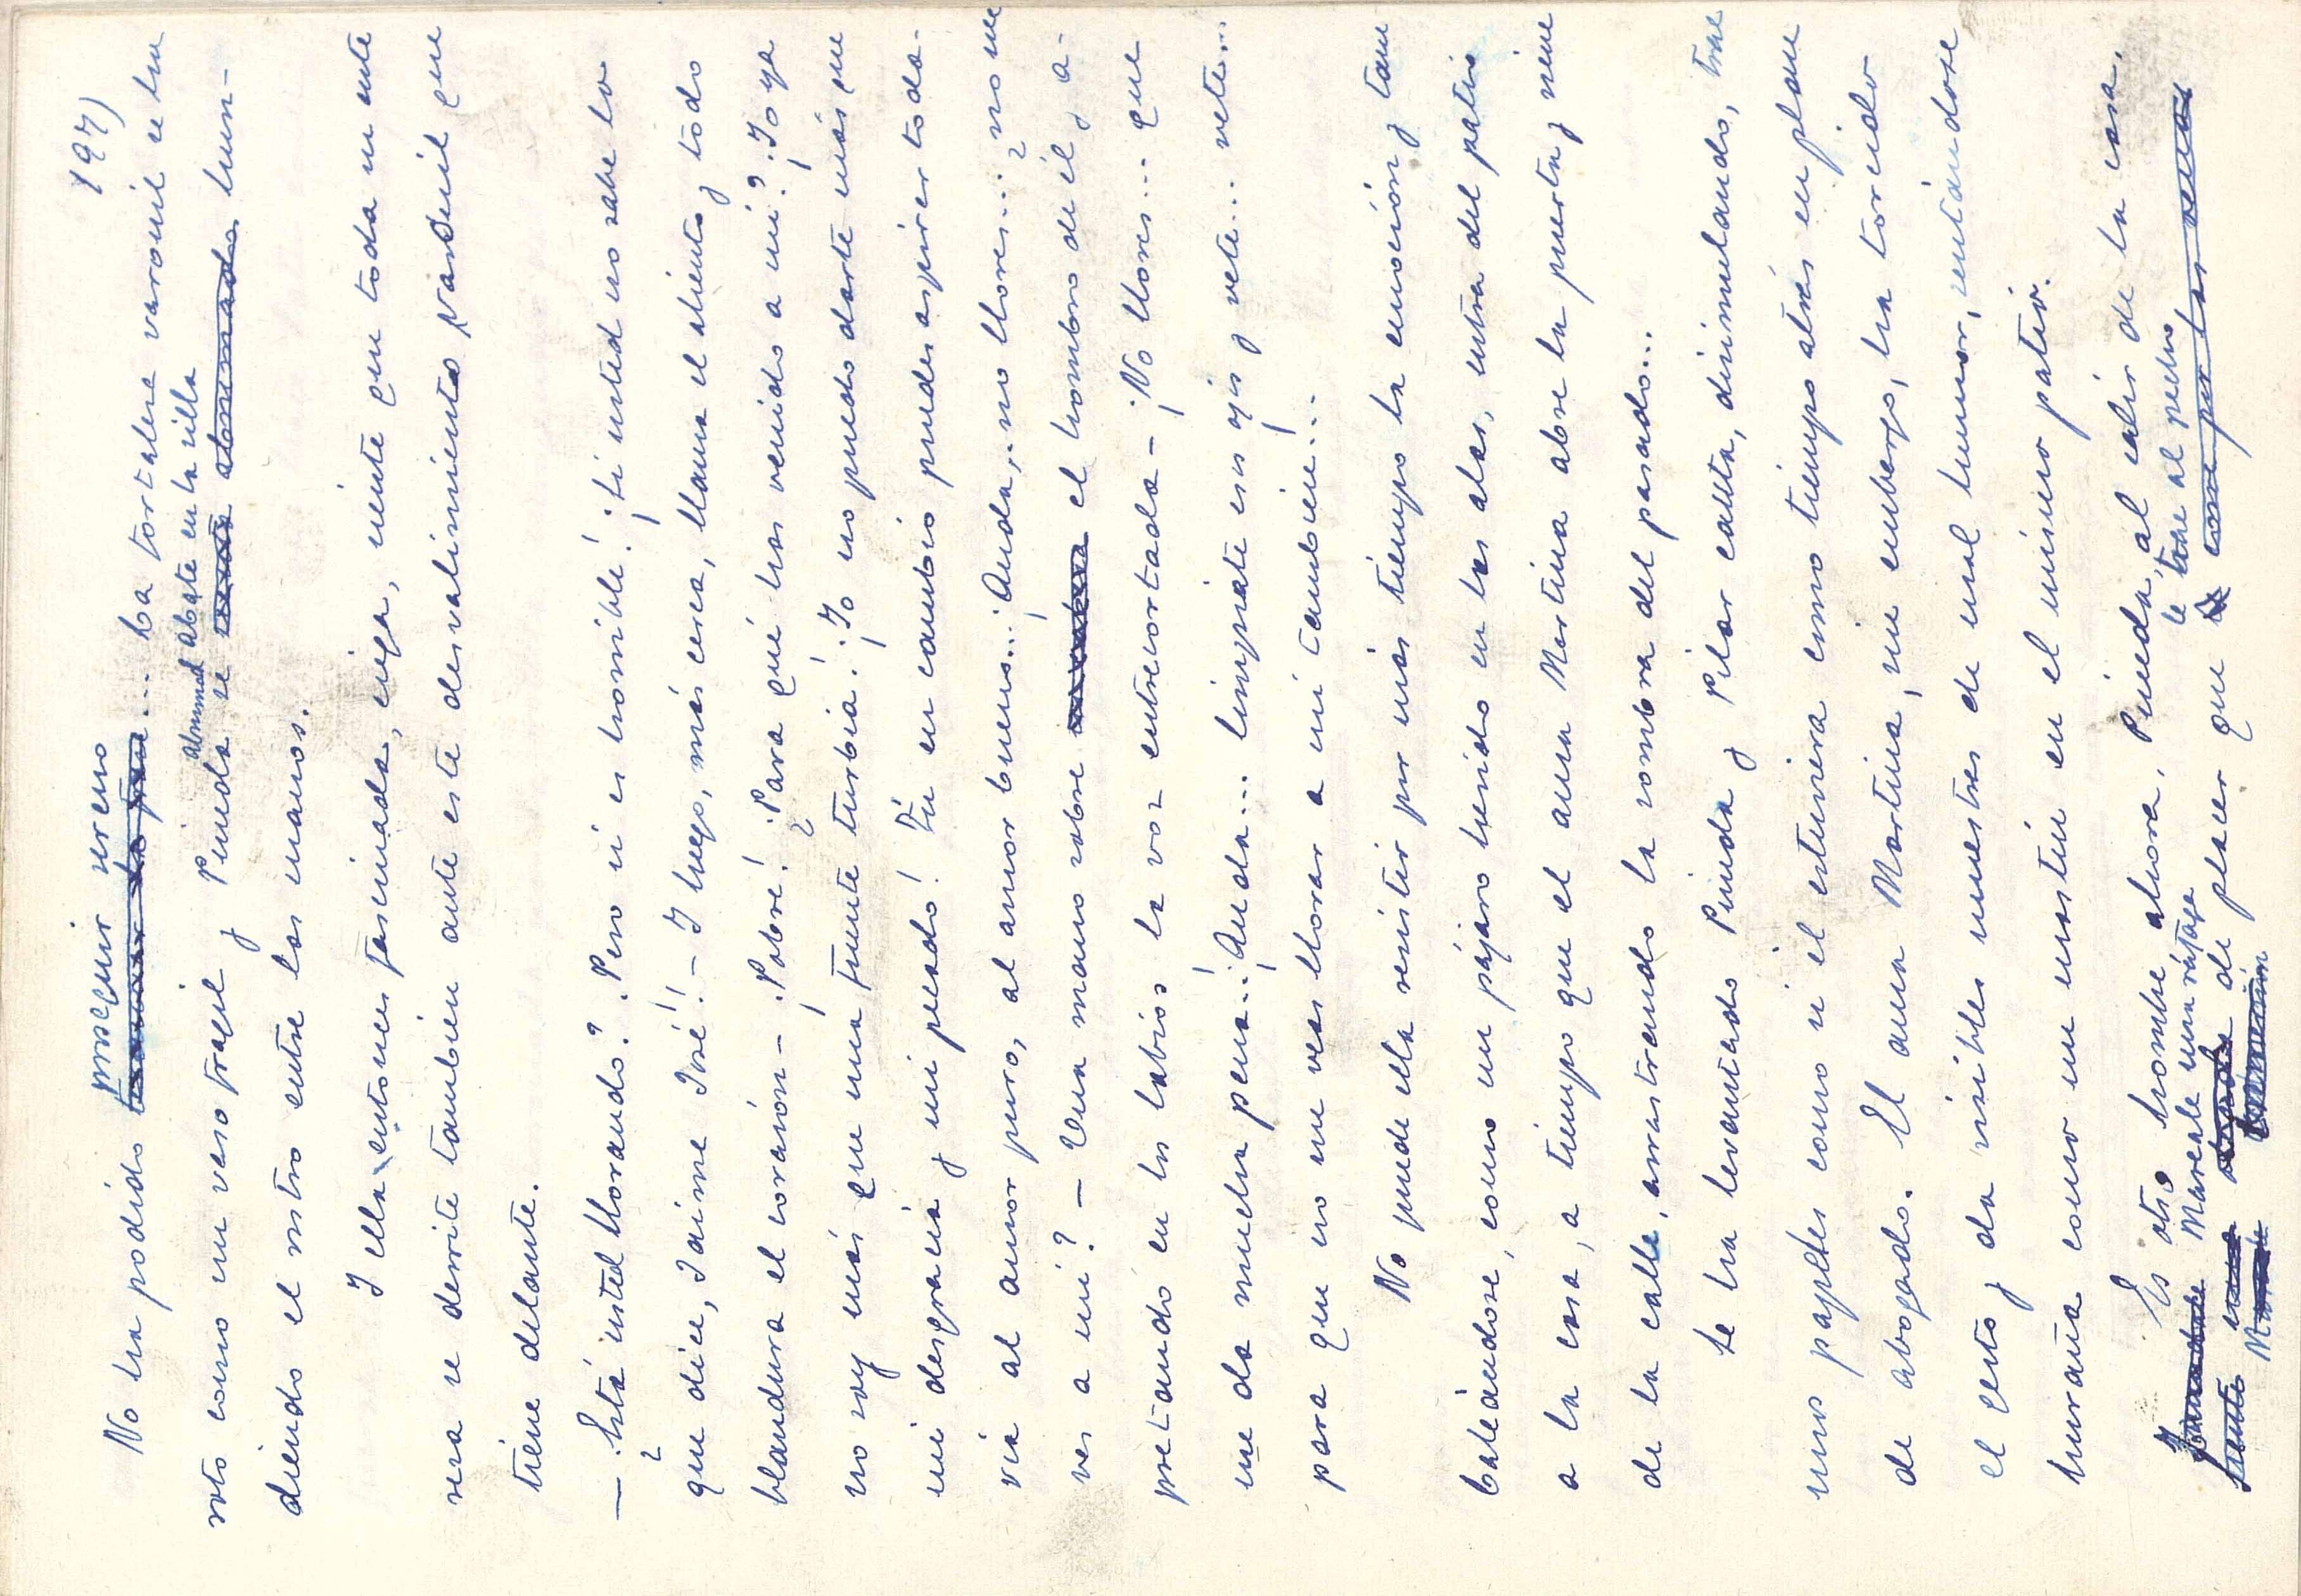 197)
proseguir sereno
No ha podido ... La fortaleza varonil se ha
abrumado abate en la silla
roto como un vaso frágil y Pineda se abrumado hun-
diendo el rostro entre las manos.
Y ella, entonces, fascinada, ciega, siente que toda su ente
reza se derrite también ante este desvalimiento varonil que
tiene delante.
— ¿Está usted llorando? ¡Pero si es horrible! ¡Si usted no sabe lo
que dice, Jaime José! — Y luego, más cerca, llama el aliento y todo
blandura el corazón — ¡Pobre! ¿Para qué has venido a mí? ¡Yo ya
no soy más que una fuente turbia! ¡Yo no puedo darte más que
mi desgracia y mi pecado! Tú en cambio puedes aspirar toda-
vía al amor puro, al amor bueno... ¡Anda, no llores... ¿no me
ves a mí? — Una mano sobre el hombro de él y a-
pretando en los labios la voz entrecortada — ¡No llores... que
me da mucha pena...! ¡Anda... límpiate esos ojos y vete... vete...
para que no me veas llorar a mí también...
No puede ella resistir por más tiempo la emoción y tam
baleándose, como un pájaro herido en las alas, entra del patio
a la casa, a tiempo que el ama Martina abre la puerta y viene
de la calle, arrastrando la sombra del pasado...
Se ha levantado Pineda y Pilar cauta, disimulando, trae
unos papeles como si él estuviera como tiempo atrás en plan
de abogado. El ama Martina, sin embargo, ha torcido
el gesto y da visibles muestras de mal humor, sentándose
huraña como un mastín en el mismo patio.
Es otro hombre ahora, Pineda, al salir de la casa.
Mareale una ráfaga le trae al pecho
Siente una de placer que la como por las venas